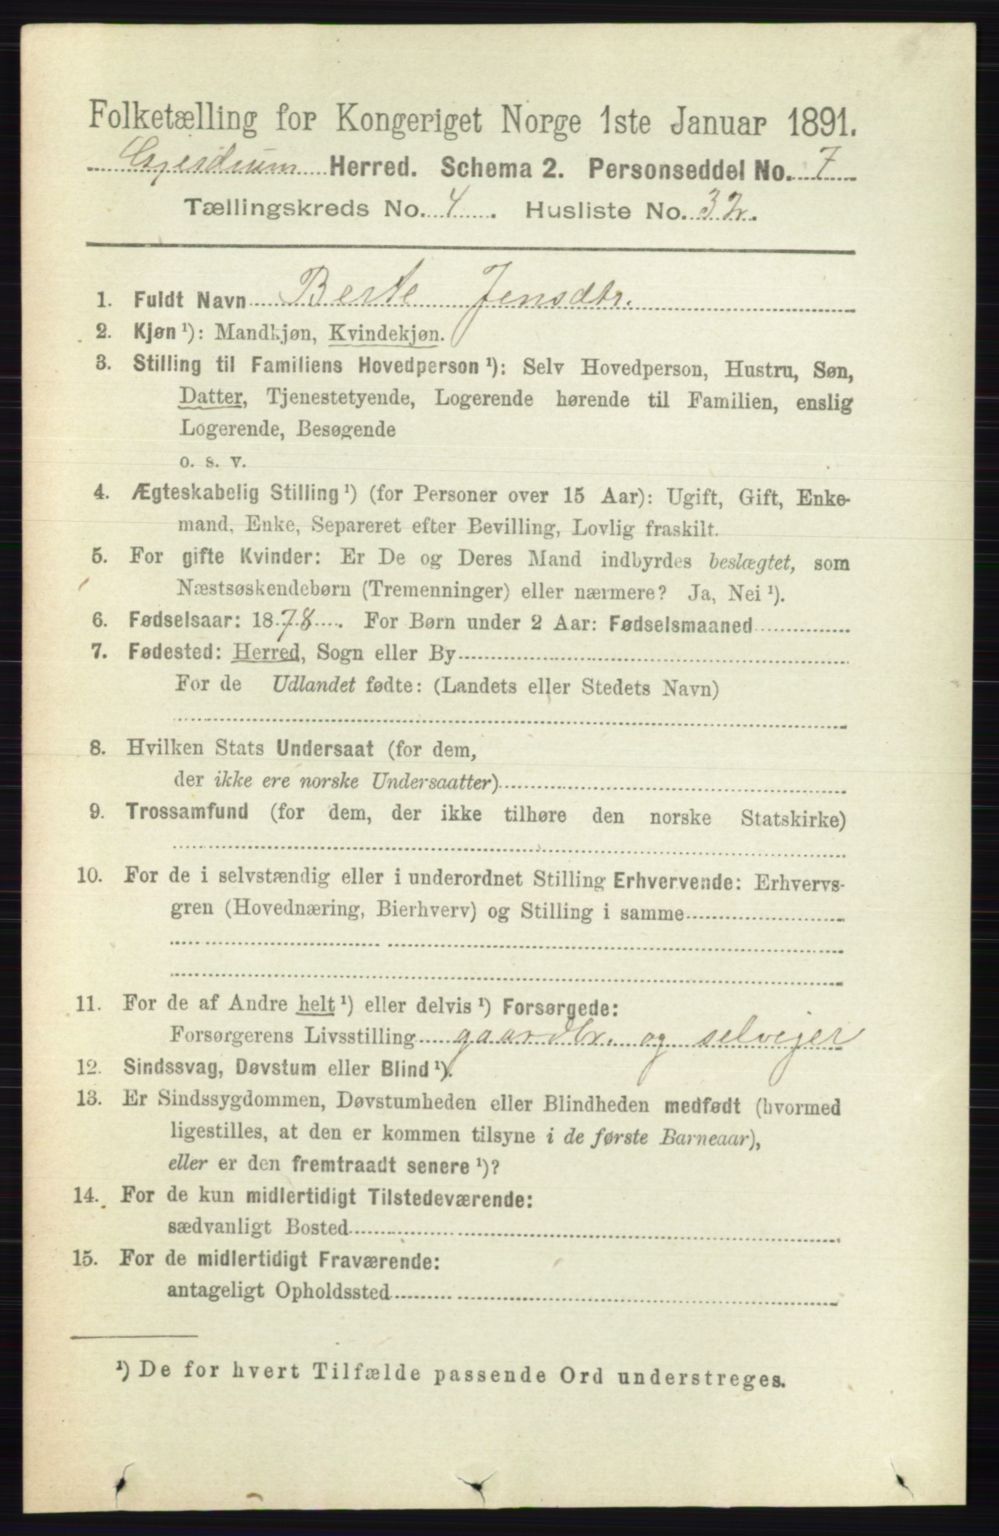 Folketælling for Kongeriget Norge 1ste Januar 1891.
Gjesdum Herred. Schema 2. Personseddel No. 7
Tællingskreds No. 4. Husliste No. 32.
1. Fuldt Navn Berte Jensdtr.
2. Kjøn ¹): Mandkjøn, Kvindekjøn.
3. Stilling til Familiens Hovedperson ¹): Selv Hovedperson, Hustru, Søn,
Datter, Tjenestetyende, Logerende hørende til Familien, enslig
Logerende, Besøgende
o. s. v.
4. Ægteskabelig Stilling ¹) (for Personer over 15 Aar): Ugift, Gift, Enke-
mand, Enke, Separeret efter Bevilling, Lovlig fraskilt.
5. For gifte Kvinder: Er De og Deres Mand indbyrdes beslægtet, som
Næstsøskendebørn (Tremenninger) eller nærmere? Ja, Nei ¹).
6. Fødselsaar: 1878. For Børn under 2 Aar: Fødselsmaaned
7. Fødested: Herred, Sogn eller By
For de Udlandet fødte: (Landets eller Stedets Navn)
8. Hvilken Stats Undersaat (for dem,
der ikke ere norske Undersaatter)
9. Trossamfund (for dem, der ikke tilhøre den norske Statskirke)
10. For de i selvstændig eller i underordnet Stilling Erhvervende: Erhvervs-
gren (Hovednæring, Bierhverv) og Stilling i samme
11. For de af Andre helt ¹) eller delvis ¹) Forsørgede:
Forsørgerens Livsstilling gaardbr. og selvejer
12. Sindssvag, Døvstum eller Blind ¹).
13. Er Sindssygdommen, Døvstumheden eller Blindheden medfødt (hvormed
ligestilles, at den er kommen tilsyne i de første Barneaar),
eller er den fremtraadt senere ¹)?
14. For de kun midlertidigt Tilstedeværende:
sædvanligt Bosted
15. For de midlertidigt Fraværende:
antageligt Opholdssted
¹) De for hvert Tilfælde passende Ord understreges.